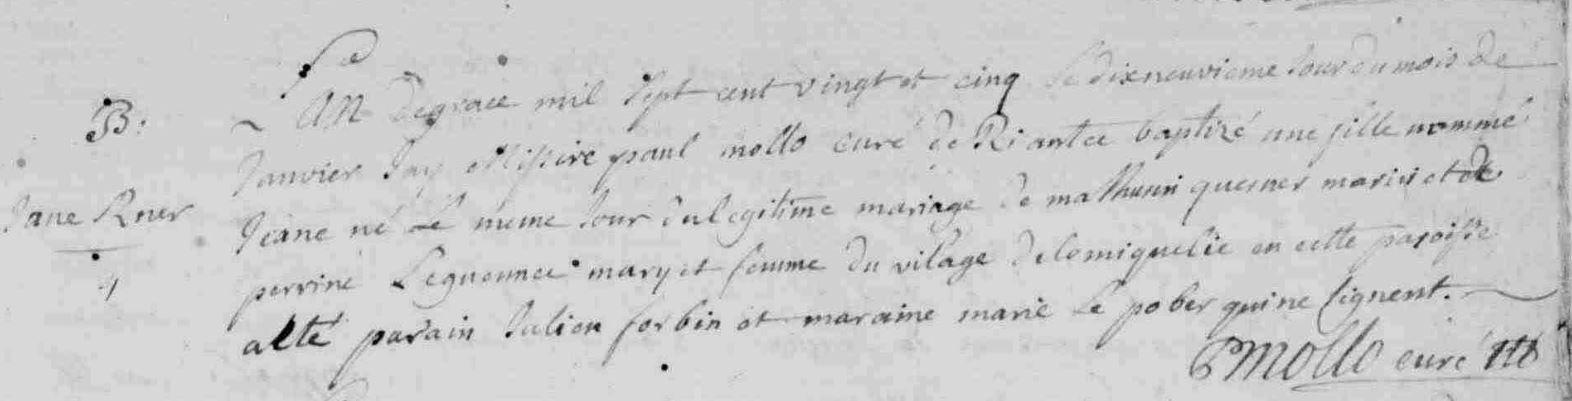 B.
Jane Rner
1
L'An de grace mil sept cent vingt et cinq le dixneuvieme Jour du mois de
Janvier Jay Missire paul mollo curé de Riantec baptizé une fille nommé
Jeane né le meme Jour du legitime mariage de mathurin querner mari et de
perrine Leguennec mary et femme du vilage de lomiquelie en cette paroisse
a eté parain Julien forbin et maraine marie Le pober qui ne signent.
P mollo curé